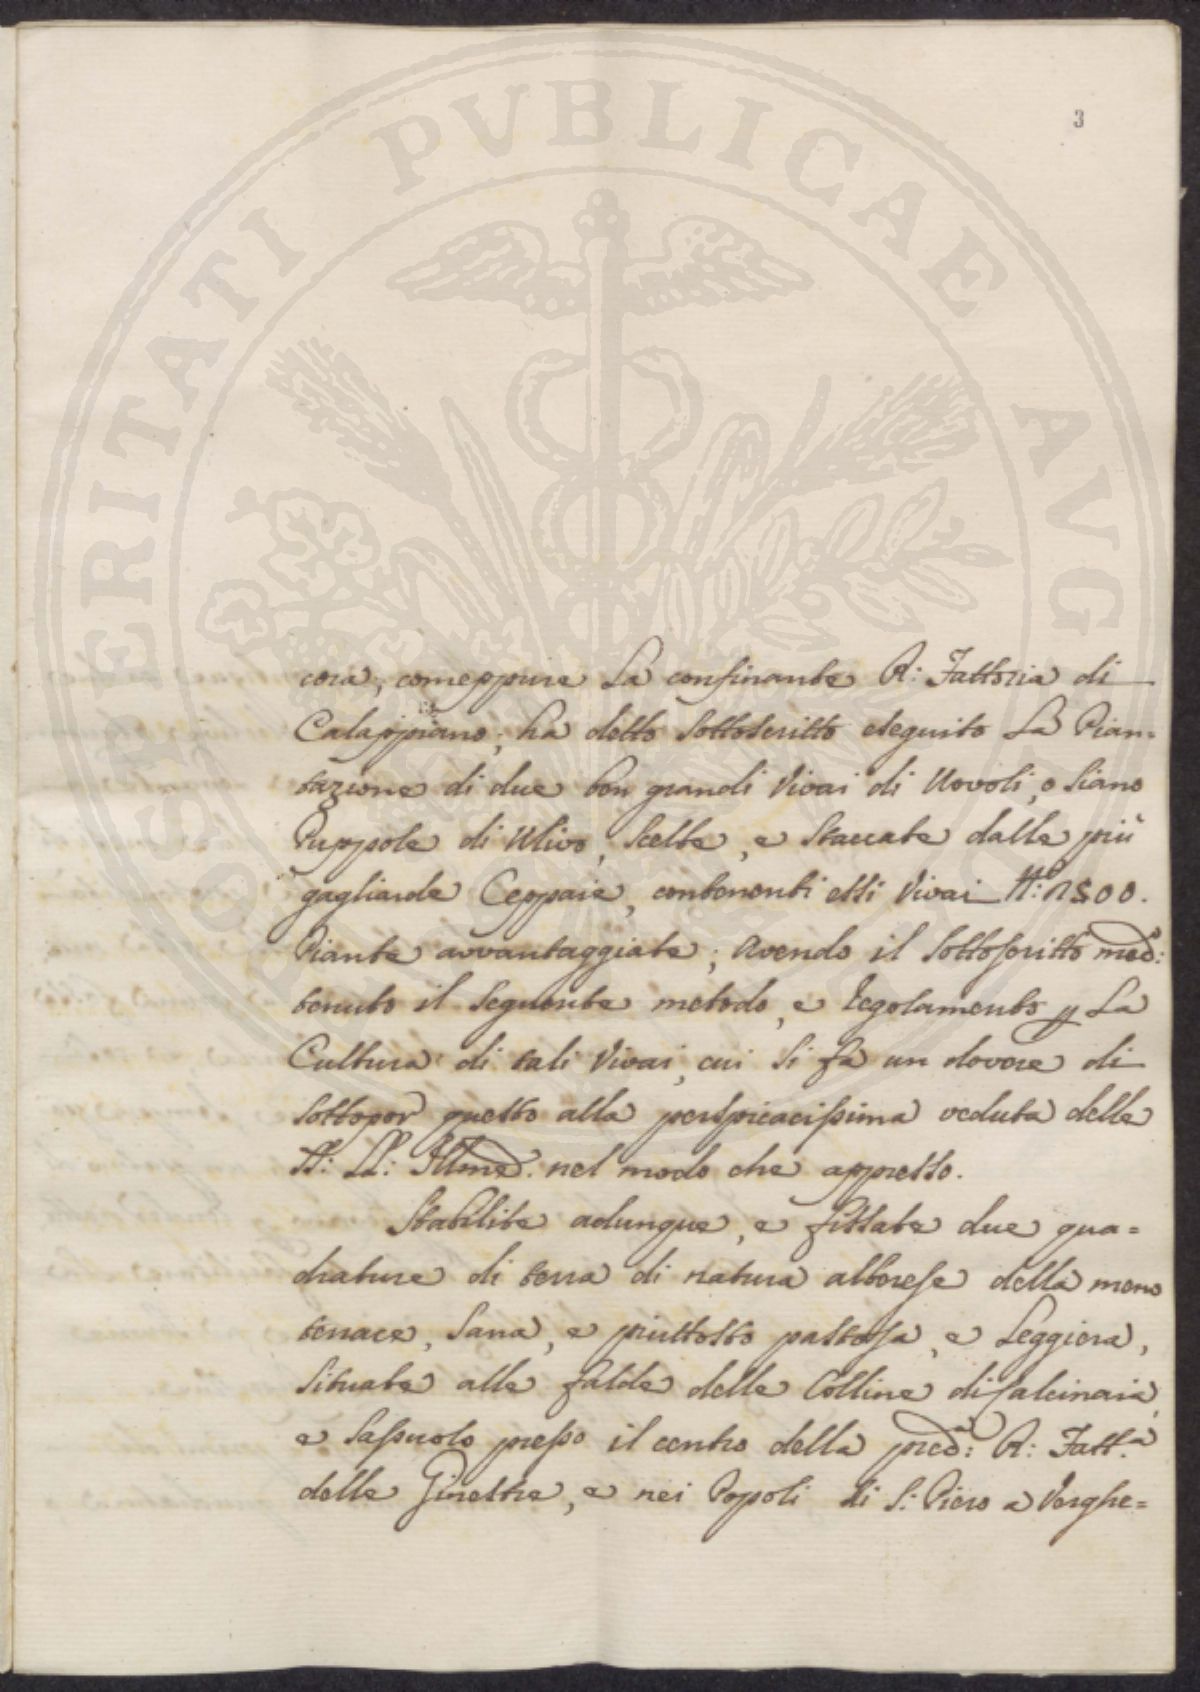 PROSPERITATI PVBLICAE AVGENDAE
3
cora, comeppure La confinante R: Fattoria di
Calappiano, ha detto Sottoscritto eseguito La Pian=
tazione di due ben grandi Vivai di Uovoli, o siano
Puppole di Ulivo, Scelte, e Staccate dalle più
gagliarde Ceppaie, contenenti essi Vivai N:o 1500.
Piante avvantaggiate; Avendo il Sottoscritto med:o
tenuto il Seguente metodo, e regolamento p La
Cultura di tali Vivai, cui Si fà un dovere di
Sottopor questo alla perspicacissima veduta delle
SS: LL: Illme. nel modo che appresso.
Stabilite adunque, e fissate due qua=
drature di terra di natura alberese della meno
tenace, Sana, e piuttosto pastosa, e Leggiera,
Situate alle falde delle Colline di Salcinaia,
e Sassuolo presso il centro della pred:a R: Fatt.a
delle Ginestre, e nei Popoli di S: Piero a Verghe=